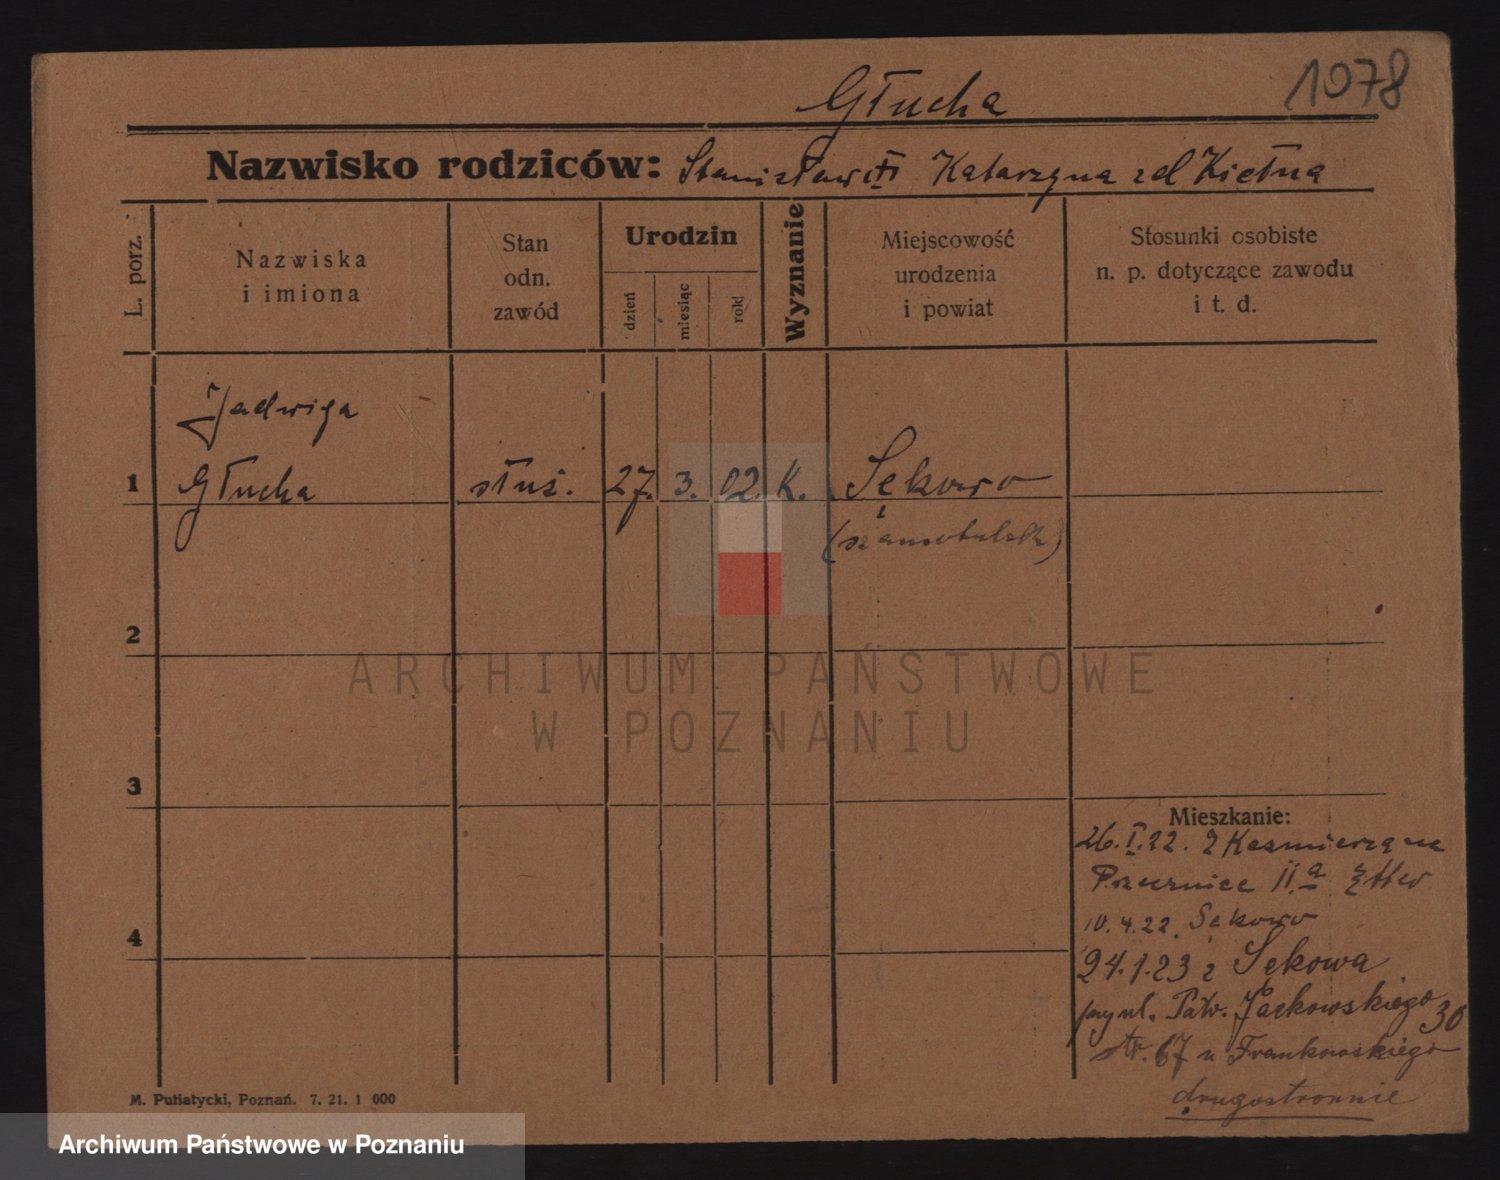 Głucha
1078
Nazwisko rodziców: Stanisław i Katarzyna zd Kiełna
L. porz.
Nazwiska
i imiona
Stan
odn.
zawód
Urodzin
dzień
miesiąc
rok
Wyznanie
Miejscowość
urodzenia
i powiat
Stosunki osobiste
n. p. dotyczące zawodu
i t. d.
Jadwiga
1 Głucha służ. 27. 3. 02. K. Sękowo
(szamotulsk)
2
3
4
Mieszkanie:
26.I.22. z Kaźmierza na
IIa
10.4.22. Sękowo
24.1.23 z Sękowa
przy ul. Patr. Jackowskiego 30
str. 67 u Frankowskiego
drugostronnie
M. Putiatycki, Poznań. 7. 21. 1 000
ARCHIWUM PAŃSTWOWE
W POZNANIU
Archiwum Państwowe w Poznaniu